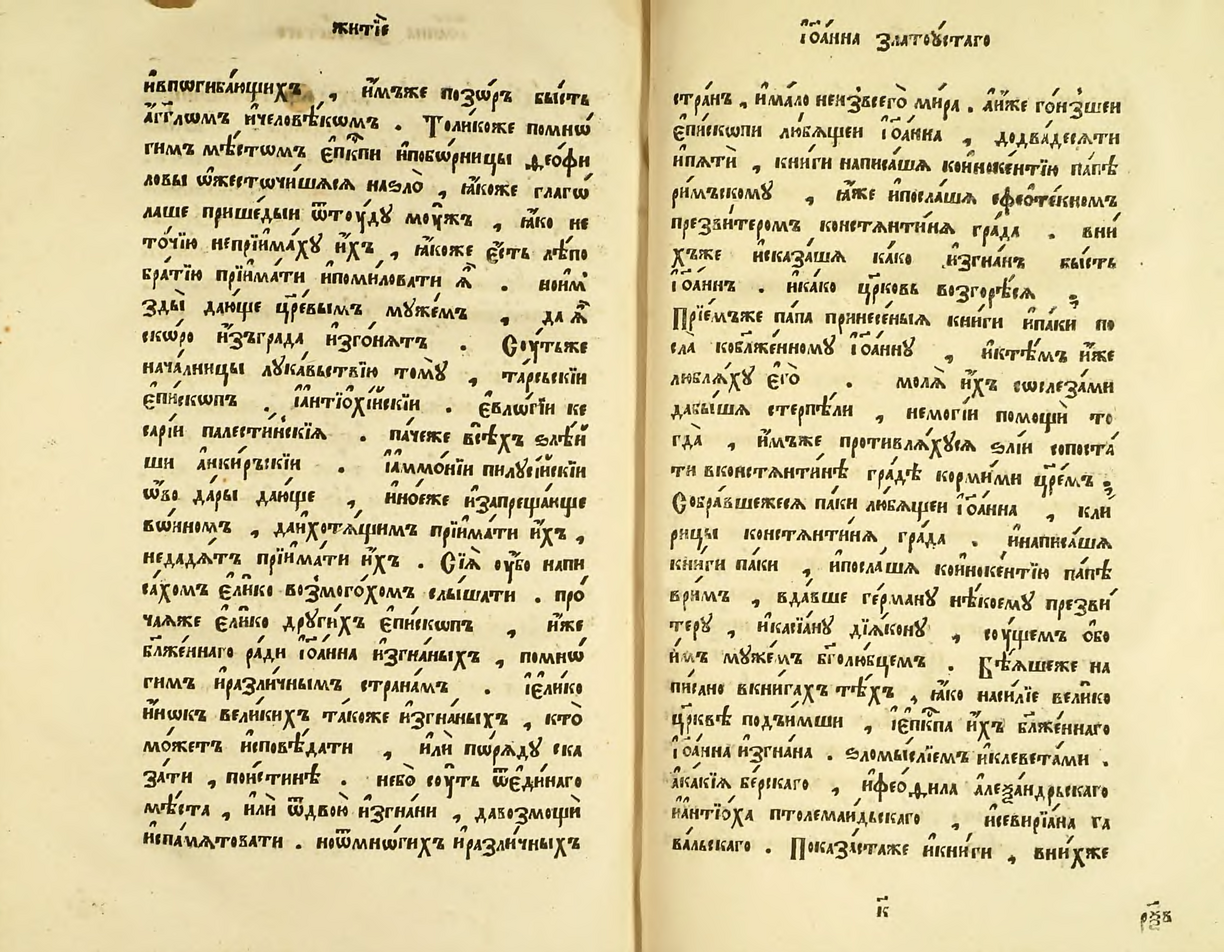 житїѐ
и҆впогиба́ющихъ , и҆̀мъже позѡ́ръ бы́сть
а҆́гг҃лѡмъ и҆человѣ́кѡмъ . Толикоже помнѡ
гимъ мѣ́стѡмъ є҆пк҃пи и҆побо́рницы ѳеѡфи
ловы ѡ҆жестѡчи́шѧсѧ наѕло̀ , ꙗ҆́коже глагѡ́
лаше прише́дыи ѿтоу́дꙋ моу́жъ , ꙗ҆́кѡ не
то́чїю непрїима́хꙋ и҆́хъ , ꙗ҆́коже є҆́сть лѣ́по
бра́тїю прїима́ти и҆поми́ловати ѧ҆̀ . нои҆м
зды̀ даю́ще цр҃е́вымъ мꙋже́мъ , да ѧ҆̀
ско́рѡ и҆зъгра́да и҆зго́нѧтъ . Соу́тьже
нача́лницы лꙋка́вьствїю томꙋ̀ , та́рсьскїи
є҆пи́скѡпъ . і҆антїѡхі́йскїи . є҆ѵло́гїи ке
сарі́и палести́нскїѧ . па́чеже всѣ́хъ ѕлѣ́и
ши а҆нки́рьскїи . і҆аммо́нїи пилꙋсі́йскїи
ѡ҆́во да́ры даю́ще , и҆но́еже и҆запреща́юще
во́инѡмъ , даи҆хотѧ́щимъ прїима́ти и҆́хъ ,
недадѧ́тъ прїима́ти и҆́хъ . Сїѧ̀ оу҆̀бо напи
са́хомъ є҆ли́ко возмого́хомъ слы́шати . про́
чаѧже є҆ли́ко дрꙋги́хъ є҆пи́скѡпъ , и҆́же
бл҃же́ннаго ра́ди і҆ѡа́нна и҆згна́ныхъ , помнѡ́
гимъ и҆разли́чнымъ страна́мъ . і҆є҆ли́ко
и҆́нѡкъ вели́кихъ та́коже и҆згна́ныхъ , кто̀
мо́жетъ и҆сповѣ́дати , и҆лѝ порѧ́дꙋ ска
за́ти , пои́стинѣ . небо̀ соу́ть ѿе҆ди́наго
мѣ́ста , и҆лѝ ѿдвою̀ и҆згна́ни , давозмощѝ
и҆спа́мѧтовати . ноѿмно́гихъ и҆разли́чныхъ
і҆ѡа́нна златоꙋ́стаго
стра́нъ , и҆ма́ло неизвсего̀ ми́ра . а҆́иже гонзшеи
є҆пи́скопи лю́бѧщеи і҆ѡа́нна , додва́десѧти
и҆пѧтѝ , кни́ги написа́шѧ кои҆ноке́нтїю па́пѣ
ри́мъскомꙋ , ꙗ҆́же и҆посла́шѧ сфеоте́кномъ
презви́теромъ констѧнти́нѧ гра́да . вни́
хъже и҆сказа́шѧ ка́кѡ и҆згна́нъ бы́сть
і҆ѡа́ннъ . и҆ка́кѡ цр҃ковь возгорѣ́сѧ .
Прїе́мъже па́па принесе́ныѧ кни́ги и҆па́ки по
сла̀ кобл҃же́нномꙋ і҆ѡа́ннꙋ , и҆ктѣ́мъ и҆́же
люблѧ́хꙋ є҆го̀ . молѧ̀ и҆́хъ сослеза́ми
дабы́шѧ стерпѣ́ли , немоги́и помощѝ то
гда̀ , и҆́мъже противлѧ́хꙋсѧ ѕлі́и сопоста́
ти вконстѧнти́нѣ гра́дѣ корми́ми цр҃е́мъ .
Собра́вшежесѧ па́ки лю́бѧщеи і҆ѡа́нна , кли
рицы констѧнти́нѧ гра́да . и҆написа́шѧ
кни́ги па́ки , и҆посла́шѧ кои҆ноке́нтїю па́пѣ
ври́мъ , вда́вше ге́рманꙋ нѣ́коемꙋ презви́
терꙋ , и҆касїа́нꙋ дїа́конꙋ , соу́щемъ обо
и́мъ мꙋже́мъ бг҃олю́бцемъ . Бѣ́ѧшеже на
пи́сано вкни́гахъ тѣ́хъ , ꙗ҆́кѡ наси́лїе вели́ко
цр҃квѣ подъи́мши , і҆є҆пк҃па и҆́хъ бл҃же́ннаго
і҆ѡа́нна и҆згна́на . ѕломы́слїемъ и҆клевета́ми .
а҆ка́кїѧ бе́рскаго , и҆феѡѳила а҆леѯа́ндрьскаго
и҆антїо́ха птолемаи́дьскаго , и҆севирїа́на га
ва́льскаго . Показа́стаже и҆кни́ги , вни́хже
к҃
рѯв